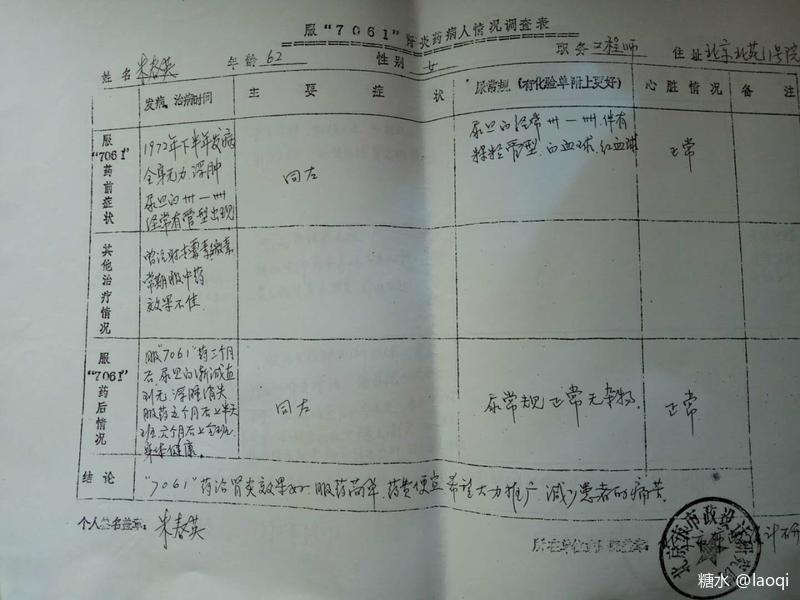 服“7061”肾炎药病人情况调查表
姓名 朱春英 年龄 62 性别 女 职务 工程师 住址 北京北苑11号院
发病、治病时间 主要症状 尿常规（有化验单附上更好） 心脏情况 备注
服“7061”药前症状
1972年下半年发病
全身无力 浮肿
尿旦白 卅一卌
经常有管型出现
同左
尿旦白经常卅一卌,伴有
颗粒管型、白血球、红血球
正常
其他治疗情况
常期服中药
效果不佳
服“7061”药后情况
服“7061”药三个月
后,尿旦白渐减直
到无,浮肿消失
服药五个月后上半天
班六个月后上全班
身体健康。
同左
尿常规正常无杂物,
正常
结论
“7061”药治肾炎效果好,服药简单,药费便宜,希望大力推广 减少患者的痛苦.
个人签名盖章: 朱春英
所在单位
北京市市政设计研究院
糖水 @laoqi